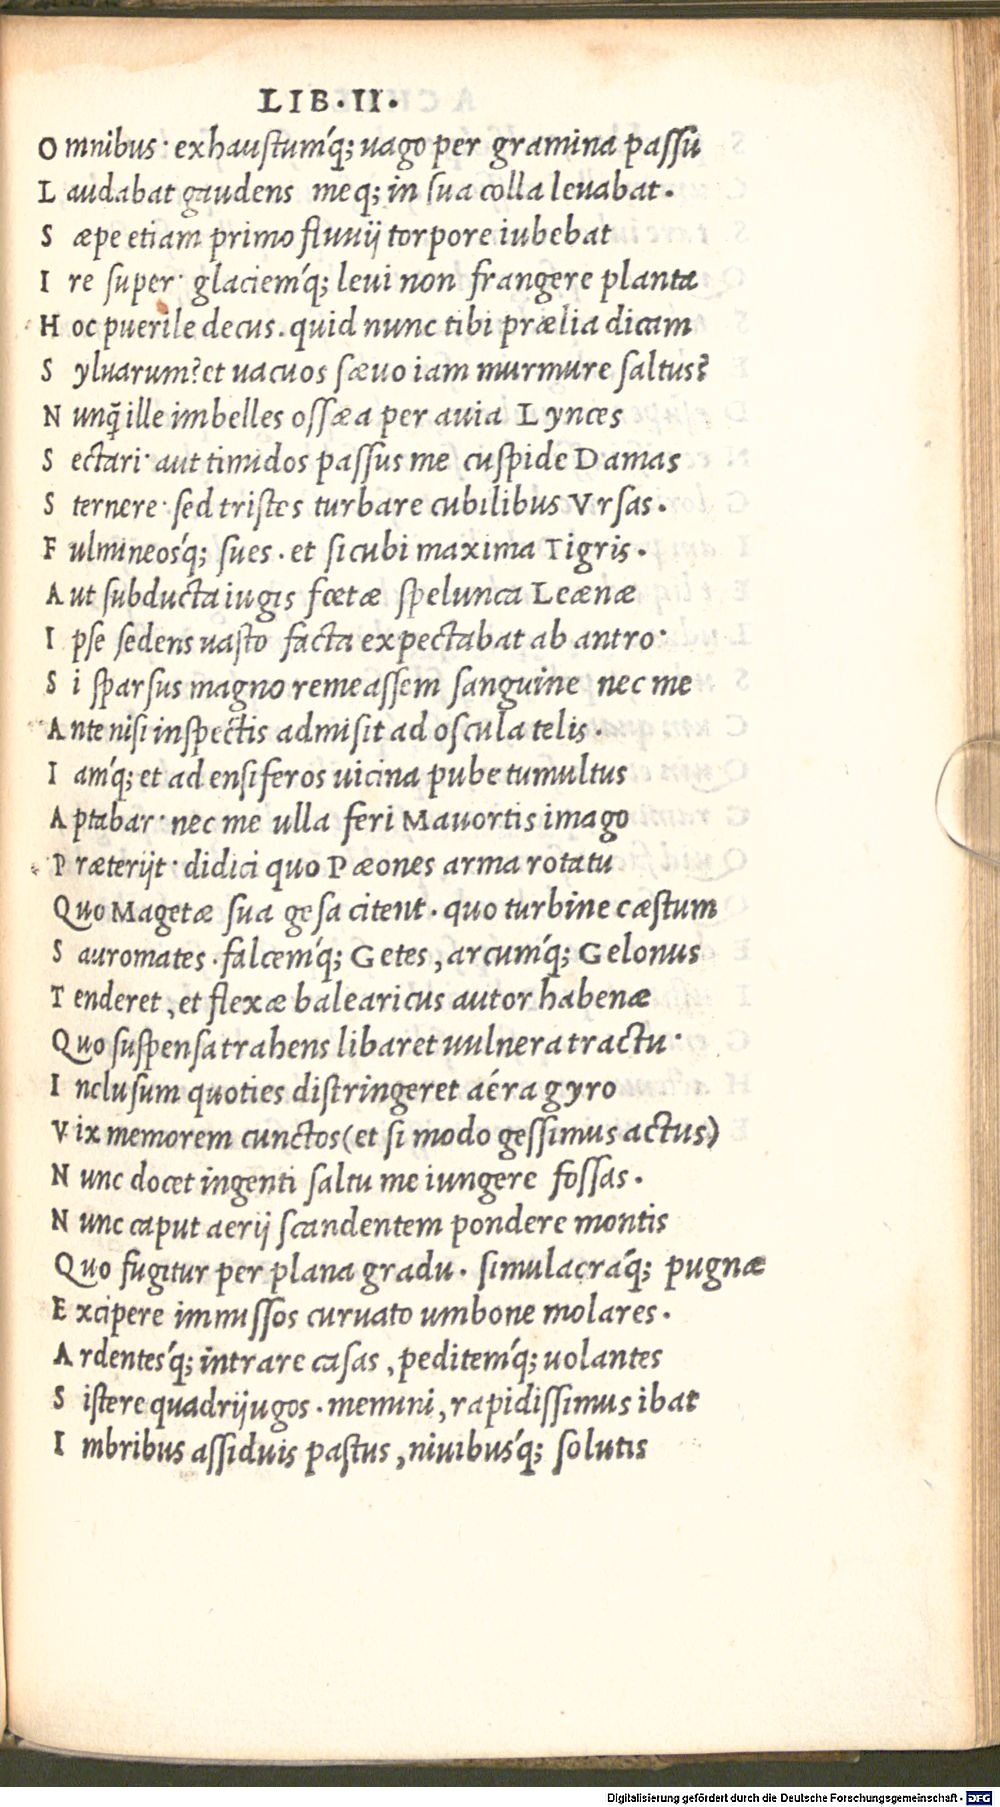 LIB. II.
Omnibus· exhaustumq́; uago per gramina passu
Laudabat gaudens meq; in sua colla leuabat.
Sæpe etiam primo fluuij torpore iubebat
Ire super· glaciemq́; leui non frangere planta
Hoc puerile decus. quid nunc tibi prælia dicam
Syluarum? et uacuos sæuo iam murmure saltus?
Nunq̃ ille imbelles ossæa per auia Lynces
Sectari· aut timidos passus me cuspide Damas
Sternere· sed tristes turbare cubilibus Vrsas.
Fulmineosq́; sues. et sicubi maxima Tigris.
Aut subducta iugis fœtæ spelunca Leænæ
Ipse sedens uasto facta expectabat ab antro·
Si sparsus magno remeassem sanguine nec me
Ante nisi inspectis admisit ad oscula telis.
Iamq́; et ad ensiferos uicina pube tumultus
Aptabar· nec me ulla feri Mauortis imago
Præterijt· didici quo Pæones arma rotatu
Quo Magetæ sua gesa citent. quo turbine cæstum
Sauromates. falcemq́; Getes, arcumq́; Gelonus
Tenderet, et flexæ balearicus autor habenæ
Quo suspensa trahens libaret uulnera tractu·
Inclusum quoties distringeret aéra gyro
Vix memorem cunctos (et si modo gessimus actus)
Nunc docet ingenti saltu me iungere fossas.
Nunc caput aerij scandentem pondere montis
Quo fugitur per plana gradu. simulacraq́; pugnæ
Excipere immissos curuato umbone molares.
Ardentesq́; intrare casas, peditemq́; uolantes
Sistere quadrijugos. memini, rapidissimus ibat
Imbribus assiduis pastus, niuibusq́; solutis
Digitalisierung gefördert durch die Deutsche Forschungsgemeinschaft - DFG